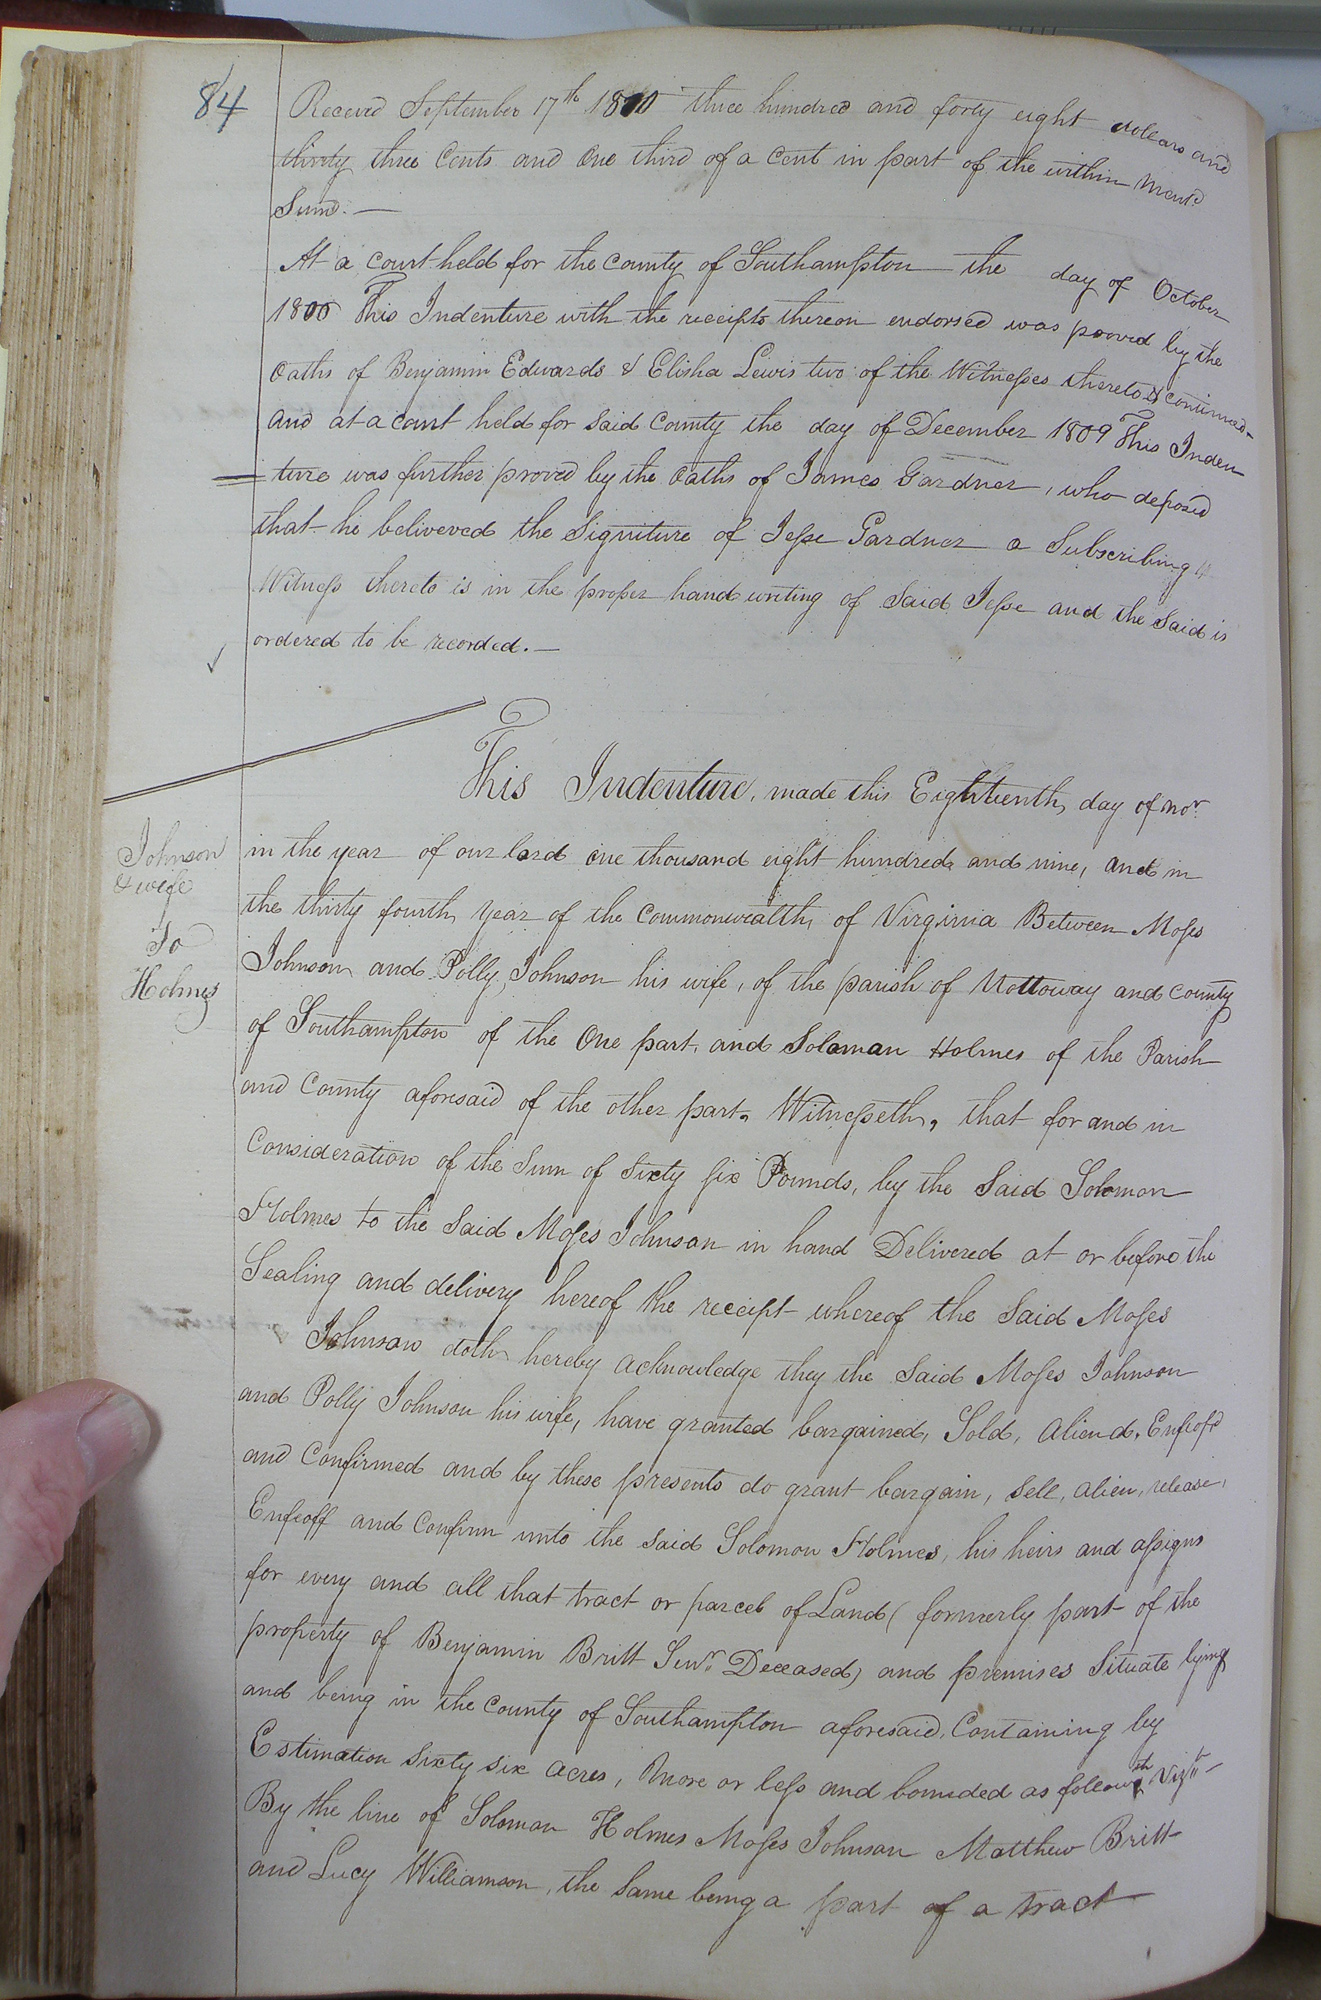 84
Received September 17th 1800 three hundred and forty eight dollars and
thirty three Cents and One third of a Cent in part of the within Ment.d
Sum. —
At a court held for the County of Southampton the day of October
1800 This Indenture with the receipts thereon endorsed was prooved by the
Oaths of Benjamin Edwards & Elisha Lewis two of the Witnesses thereto & continued-
and at a court held for said County the day of December 1809 This Inden
ture was further proved by the Oaths of James Gardner, who deposed
that he beliveved the Signiture of Jesse Gardner a Subscribing
Witness thereto is in the proper hand writing of Said Jesse and the Said is
ordered to be recorded. —
This Indenture, made this Eighteenth day of Nov.r
Johnson
& wife
To
Holmes
in the year of our lord one thousand eight hundred and nine, and in
the thirty fourth Year of the Commonwealth of Virginia Between Moses
Johnson and Polly Johnson his wife, of the parish of Nottoway and County
of Southampton of the One part, and Soloman Holmes of the Parish
and County aforesaid of the other part, Witnesseth, that for and in
Consideration of the Sum of Sixty six Pounds, by the Said Solomon
Holmes to the Said Moses Johnson in hand Delivered at or before the
Sealing and delivery hereof the receipt whereof the Said Moses
Johnson doth hereby acknowledge they the Said Moses Johnson
and Polly Johnson his wife, have granted bargained, Sold, Aliend, Enfeofd
and Confirmed and by these presents do grant bargain, Sell, alien, release,
Enfeoff and Confirm unto the Said Solomon Holmes, his heirs and assigns
for every and all that tract or parcel of Land (formerly part of the
property of Benjamin Britt Sen.r Deceased) and premises Situate lying
and being in the County of Southampton aforesaid, Containing by
Estimation Sixty six acres, More or less and bounded as followeth Viz.t
By the line of Soloman Holmes Moses Johnson Matthew Britt
and Lucy Williamson, the Same being a part of a tract